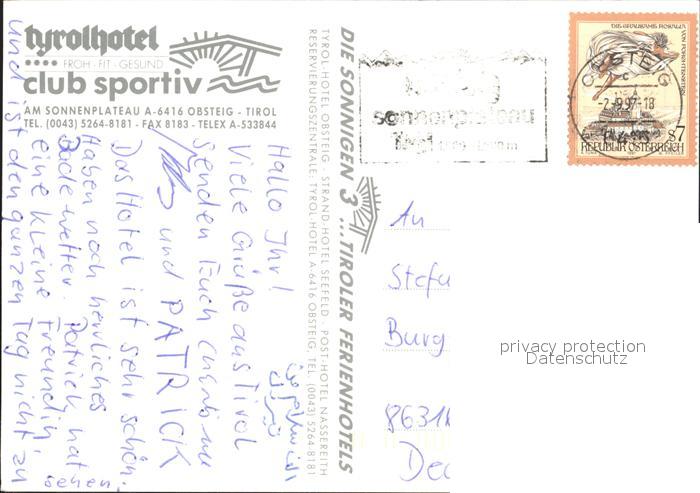 tyrolhotel
FROH - FIT - GESUND
club sportiv
AM SONNENPLATEAU A-6416 OBSTEIG - TIROL
TEL. (0043) 5264-8181 - FAX 8183 - TELEX A-533844
Hallo Ihr!
Viele Grüße aus Tirol
senden Euch
und PATRICK
Das Hotel ist sehr schön.
Haben noch herrliches
Badewetter. Patrick hat
eine kleine Freundin
und ist den ganzen Tag nicht zu
sehen.
TYROL-HOTEL OBSTEIG - STRAND-HOTEL SEEFELD - POST-HOTEL NASSEREITH
RESERVIERUNGSZENTRALE: TYROL-HOTEL A-6416 OBSTEIG, TEL. (0043) 5264-8181
DIE SONNIGEN 3 ...TIROLER FERIENHOTELS
sonnenplateau
Tirol
OBSTEIG
-7-9.97-18
DIE GRAUSAME ROSALIA
VON FORCHTENSTEIN
S7
REPUBLIK ÖSTERREICH
An
Stefa
Burg
8631
privacy protection
Datenschutz